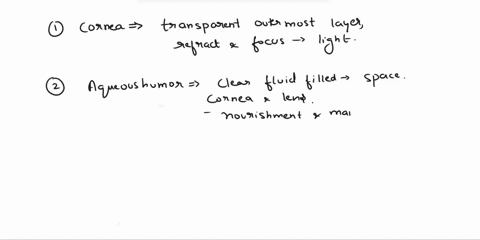 ① Cornea ⇒ transparent outermost layer,
refract & focus → light.
② Aqueous humor ⇒ clear fluid filled → space.
Cornea & lens.
- nourishment & mai